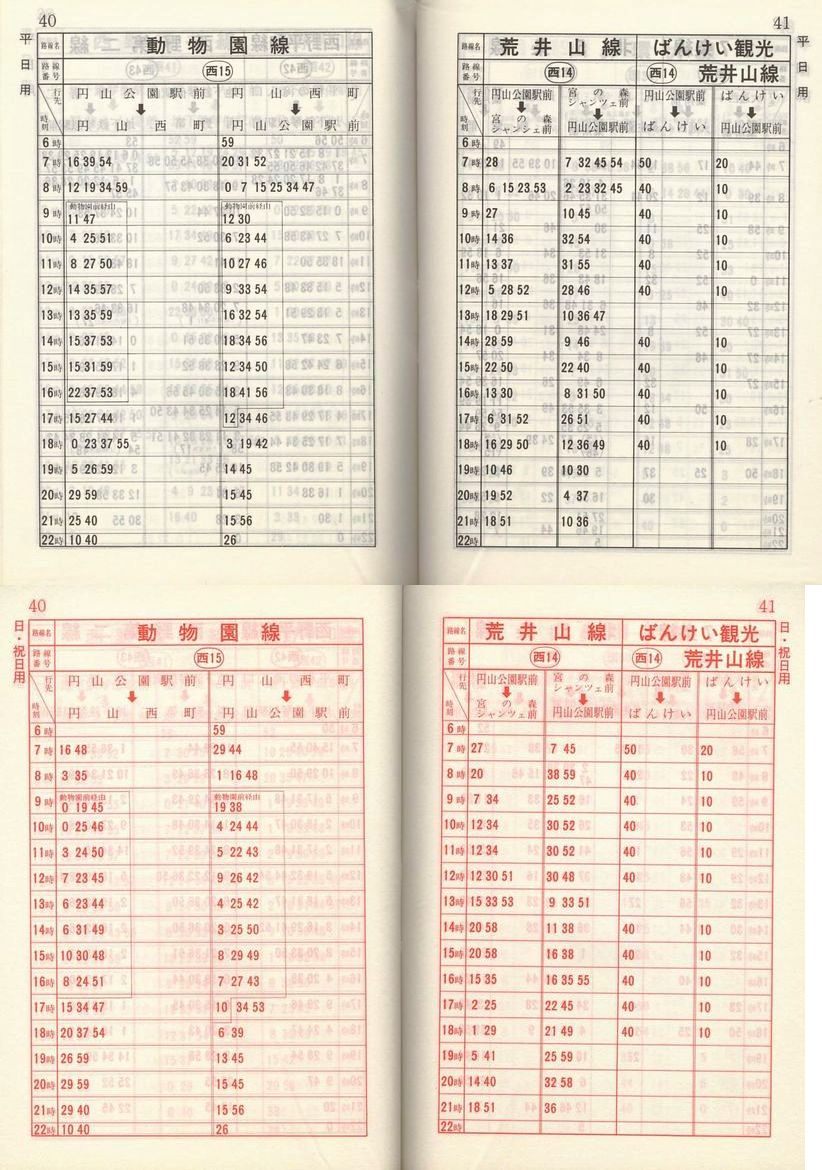 40
平日用
路線名 動物園線
路線番号 西15
行先 時刻 円山公園駅前 ↓ 円山西町 円山西町 ↓ 円山公園駅前
6時 59
7時 16 39 54 20 31 52
8時 12 19 34 59 0 7 15 25 34 47
9時 動物園前経由 11 47 動物園前経由 12 30
10時 4 25 51 6 23 44
11時 8 27 50 10 27 46
12時 14 35 57 9 33 54
13時 13 35 59 16 32 54
14時 15 37 53 18 34 56
15時 15 31 59 12 34 50
16時 22 37 53 18 41 56
17時 15 27 44 12 34 46
18時 0 23 37 55 3 19 42
19時 5 26 59 14 45
20時 29 59 15 45
21時 25 40 15 56
22時 10 40 26
41
平日用
路線名 荒井山線 ばんけい観光
路線番号 西14 西14 荒井山線
行先 時刻 円山公園駅前 ↓ 宮の森シャンシェ前 宮の森シャンツェ前 ↓ 円山公園駅前 円山公園駅前 ↓ ばんけい ばんけい ↓ 円山公園駅前
6時
7時 28 7 32 45 54 50 20
8時 6 15 23 53 2 23 32 45 40 10
9時 27 10 45 40 10
10時 14 36 32 54 40 10
11時 13 37 31 55 40 10
12時 5 28 52 28 46 40 10
13時 18 29 51 10 36 47
14時 28 59 9 46 40 10
15時 22 50 22 40 40 10
16時 13 30 8 31 50 40 10
17時 6 31 52 26 51 40 10
18時 16 29 50 12 36 49 40 10
19時 10 46 10 30
20時 19 52 4 37
21時 18 51 10 36
22時
40
日・祝日用
路線名 動物園線
路線番号 西15
行先 時刻 円山公園駅前 ↓ 円山西町 円山西町 ↓ 円山公園駅前
6時 59
7時 16 48 29 44
8時 3 35 1 16 48
9時 動物園前経由 0 19 45 動物園前経由 19 38
10時 0 25 46 4 24 44
11時 3 24 50 5 22 43
12時 7 23 45 9 26 42
13時 6 23 44 4 25 42
14時 6 31 49 3 25 50
15時 10 30 48 8 29 49
16時 8 24 51 7 27 43
17時 15 34 47 10 34 53
18時 20 37 54 6 39
19時 26 59 13 45
20時 29 59 15 45
21時 29 40 15 56
22時 10 40 26
41
日・祝日用
路線名 荒井山線 ばんけい観光
路線番号 西14 西14 荒井山線
行先 時刻 円山公園駅前 ↓ 宮の森シャンツェ前 宮の森シャンツェ前 ↓ 円山公園駅前 円山公園駅前 ↓ ばんけい ばんけい ↓ 円山公園駅前
6時
7時 27 7 45 50 20
8時 20 38 59 40 10
9時 7 34 25 52 40 10
10時 12 34 30 52 40 10
11時 12 34 30 52 40 10
12時 12 30 51 30 48 40 10
13時 15 33 53 9 33 51
14時 20 58 11 38 40 10
15時 20 58 16 38 40 10
16時 15 35 16 35 55 40 10
17時 2 25 22 45 40 10
18時 1 29 21 49 40 10
19時 5 41 25 59
20時 14 40 32 58
21時 18 51 36
22時